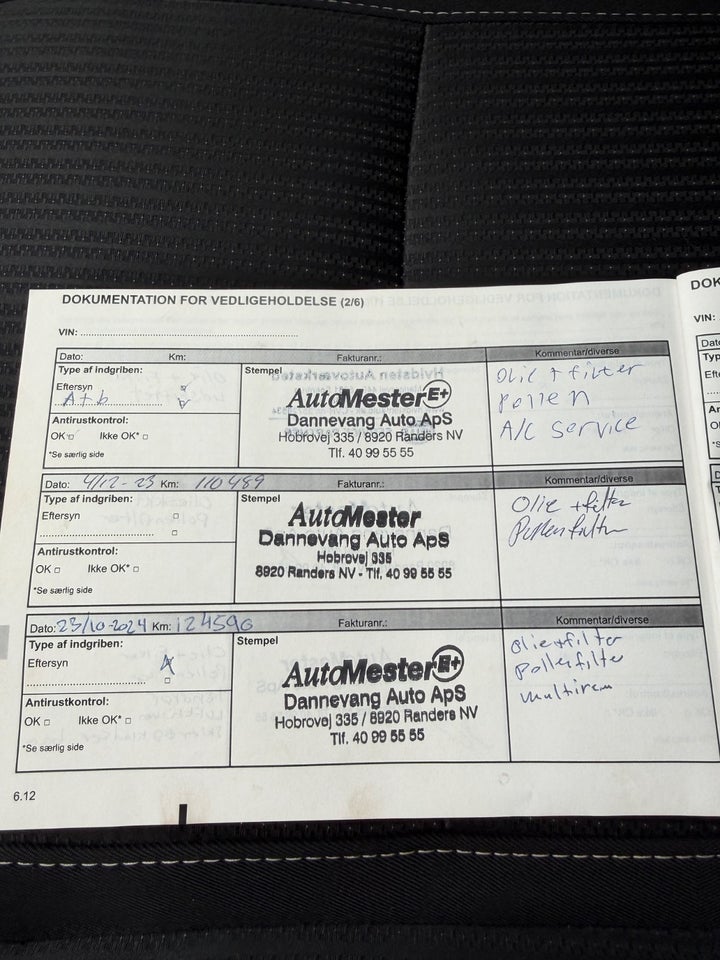 DOKUMENTATION FOR VEDLIGEHOLDELSE (2/6)
VIN:
Dato: Km: Fakturanr.: Kommentar/diverse
Type af indgriben:
Eftersyn
A+b
Antirustkontrol:
OK Ikke OK*
*Se særlig side
Stempel
AutoMester E+
Dannevang Auto ApS
Hobrovej 335 / 8920 Randers NV
Tlf. 40 99 55 55
Olie + filter
Pollen
A/C Service
Dato: 4/12-23 Km: 110489 Fakturanr.: Kommentar/diverse
Type af indgriben:
Eftersyn
Antirustkontrol:
OK Ikke OK*
*Se særlig side
Stempel
AutoMester
Dannevang Auto ApS
Hobrovej 335
8920 Randers NV - Tlf. 40 99 55 55
Olie + filter
Pollenfilter
Dato: 23/10-2024 Km: 124590 Fakturanr.: Kommentar/diverse
Type af indgriben:
Eftersyn
Antirustkontrol:
OK Ikke OK*
*Se særlig side
Stempel
AutoMester E+
Dannevang Auto ApS
Hobrovej 335 / 8920 Randers NV
Tlf. 40 99 55 55
Olie+filter
Pollenfilter
multirem
6.12
DOK
VIN: